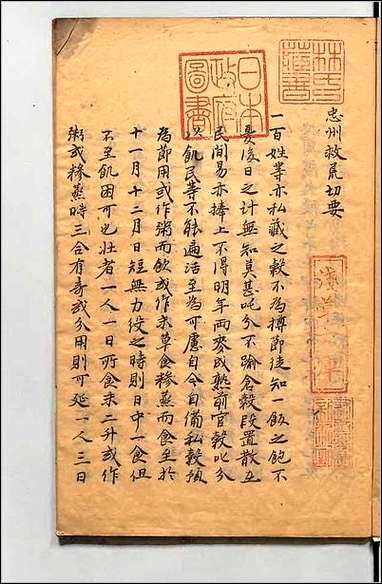 林氏藏書
日本政府圖書
忠州救荒切要
淺草文庫
一百姓等亦私藏之穀不為撙節徒知一飯之飽不
要後日之計無知莫甚叱分不喻倉穀段置散在
民間易亦捧上不得明年兩麥成熟前官穀叱分
以飢民等不能遍活至為可慮自今自備私穀預
為節用或作粥而飲或作末草食糝蒸而食至於
十一月十二月日短無力役之時則日中一食但
不至飢困可也壯者一人一日所食米二升或作
粥或糝蒸時三合有奇或分用則可延一人三日